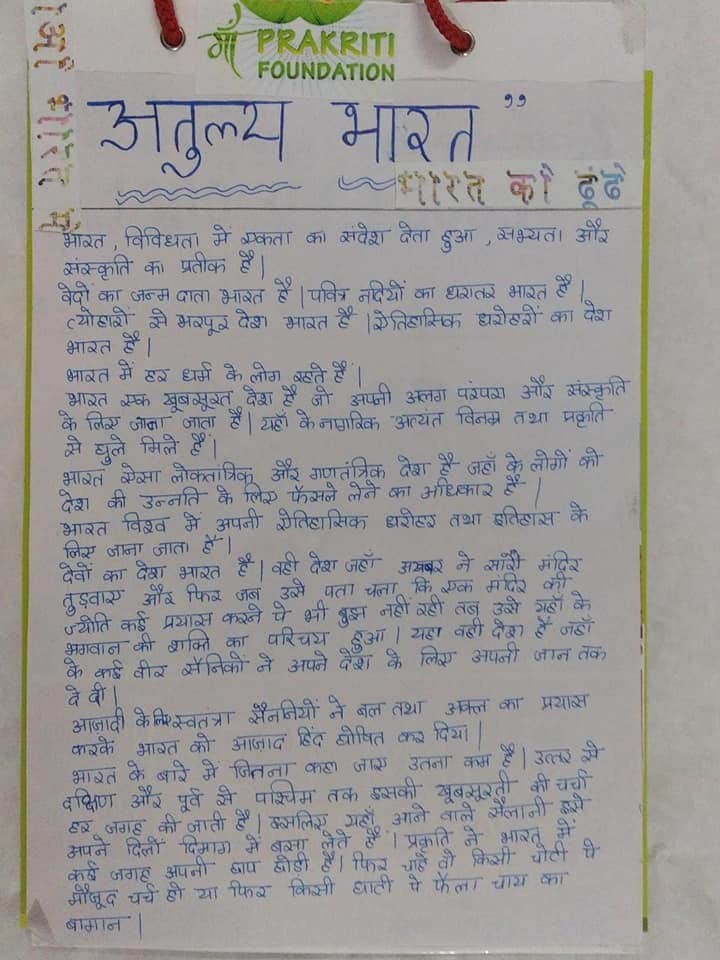 माँ PRAKRITI
FOUNDATION
अतुल्य भारत ”
भारत को ढूंढे
भारत में
भारत , विविधता में एकता का संदेश देता हुआ , सभ्यता और
संस्कृति का प्रतीक है |
वेदों का जन्म दाता भारत है | पवित्र नदियों का धरातर भारत है |
त्योहारों से भरपूर देश भारत है | ऐतिहासिक धरोहरों का देश
भारत है |
भारत में हर धर्म के लोग रहते हैं |
भारत एक खूबसूरत देश है जो अपनी अलग परंपरा और संस्कृति
के लिए जाना जाता है | यहाँ के नागरिक अत्यंत विनम्र तथा प्रकृति
से घुले मिले हैं |
भारत ऐसा लोकतांत्रिक और गणतंत्रिक देश है जहाँ के लोगों को
देश की उन्नति के लिए फैसले लेने का अधिकार है |
भारत विश्व में अपनी ऐतिहासिक धरोहर तथा इतिहास के
लिए जाना जाता है |
देवों का देश भारत है | वही देश जहाँ अकबर ने सारे मंदिर
तुड़वाए और फिर जब उसे पता चला कि एक मंदिर की
ज्योति कई प्रयास करने पे भी बुझ नहीं रही तब उसे यहाँ के
भगवान की शक्ति का परिचय हुआ | यहा वही देश है जहाँ
के कई वीर सैनिकों ने अपने देश के लिए अपनी जान तक
दे दी |
आज़ादी के लिए स्वतंत्रा सैननियों ने बल तथा अक्ल का प्रयास
करके भारत को आज़ाद हिंद घोषित कर दिया |
भारत के बारे में जितना कहा जाए उतना कम है | उत्तर से
दक्षिण और पूर्व से पश्चिम तक इसकी खूबसूरती की चर्चा
हर जगह की जाती है | इसलिए यहाँ आने वाले सैलानी इसे
अपने दिलों दिमाग में बसा लेते हैं | प्रकृति ने भारत में
कई जगह अपनी छाप छोड़ी है | फिर चाहे वो किसी चोटी पे
मौजूद चर्च हो या फिर किसी घाटी पे फैला चाय का
बागान |